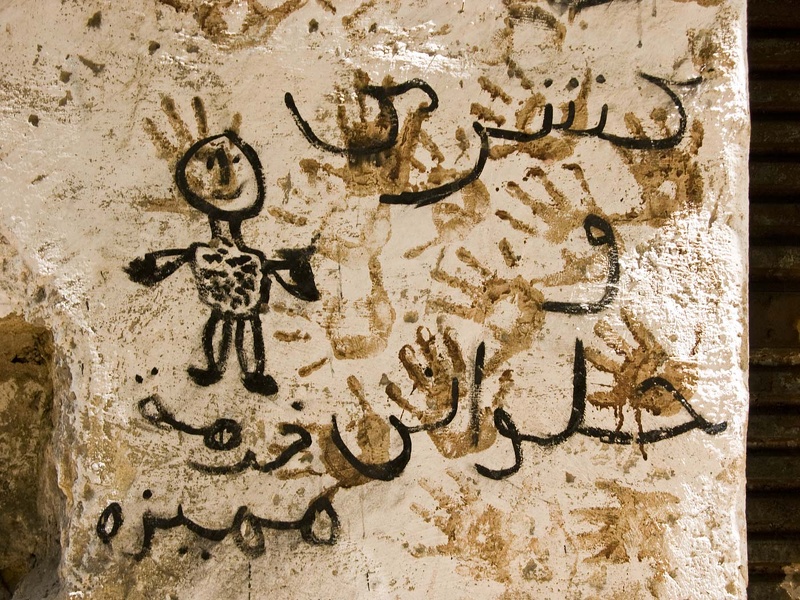 كشرى
و
حلوانى خدمة
مميزه